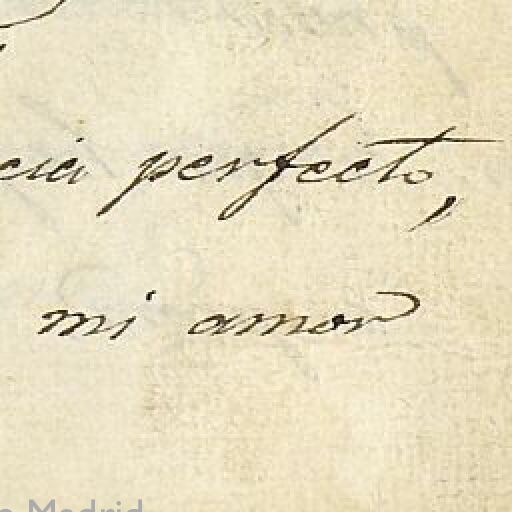 perfecto,
mi amor
Madrid